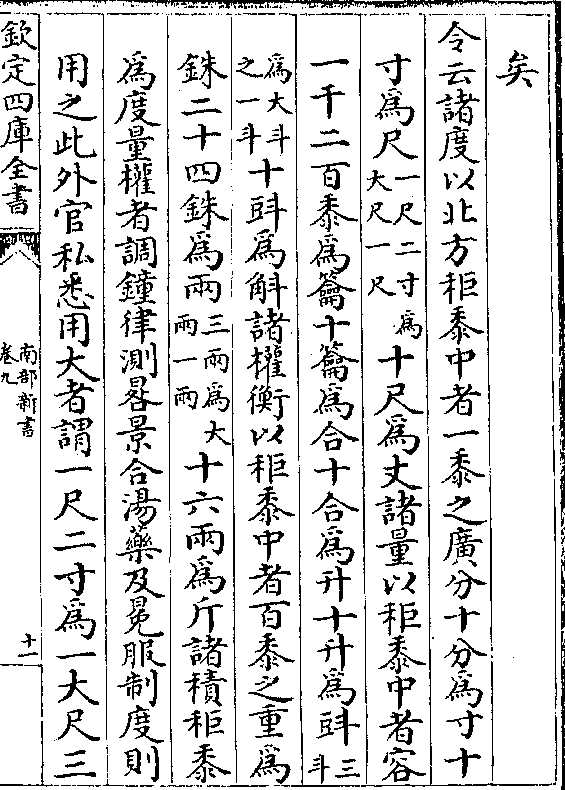 矣
令云諸度以北方秬黍中者一黍之廣分十分為寸十
寸為尺一尺二寸為大尺一尺十尺為丈諸量以秬黍中者容
一千二百黍為籥十籥為合十合為升十升為㪷三斗
為大斗之一斗十㪷為斛諸權衡以秬黍中者百黍之重為
銖二十四銖為兩三兩為大兩一兩十六兩為斤諸積秬黍
為度量權者調鐘律測晷景合湯藥及冕服制度則
用之此外官私悉用大者謂一尺二寸為一大尺三
欽定四庫全書
南部新書
卷九
十一